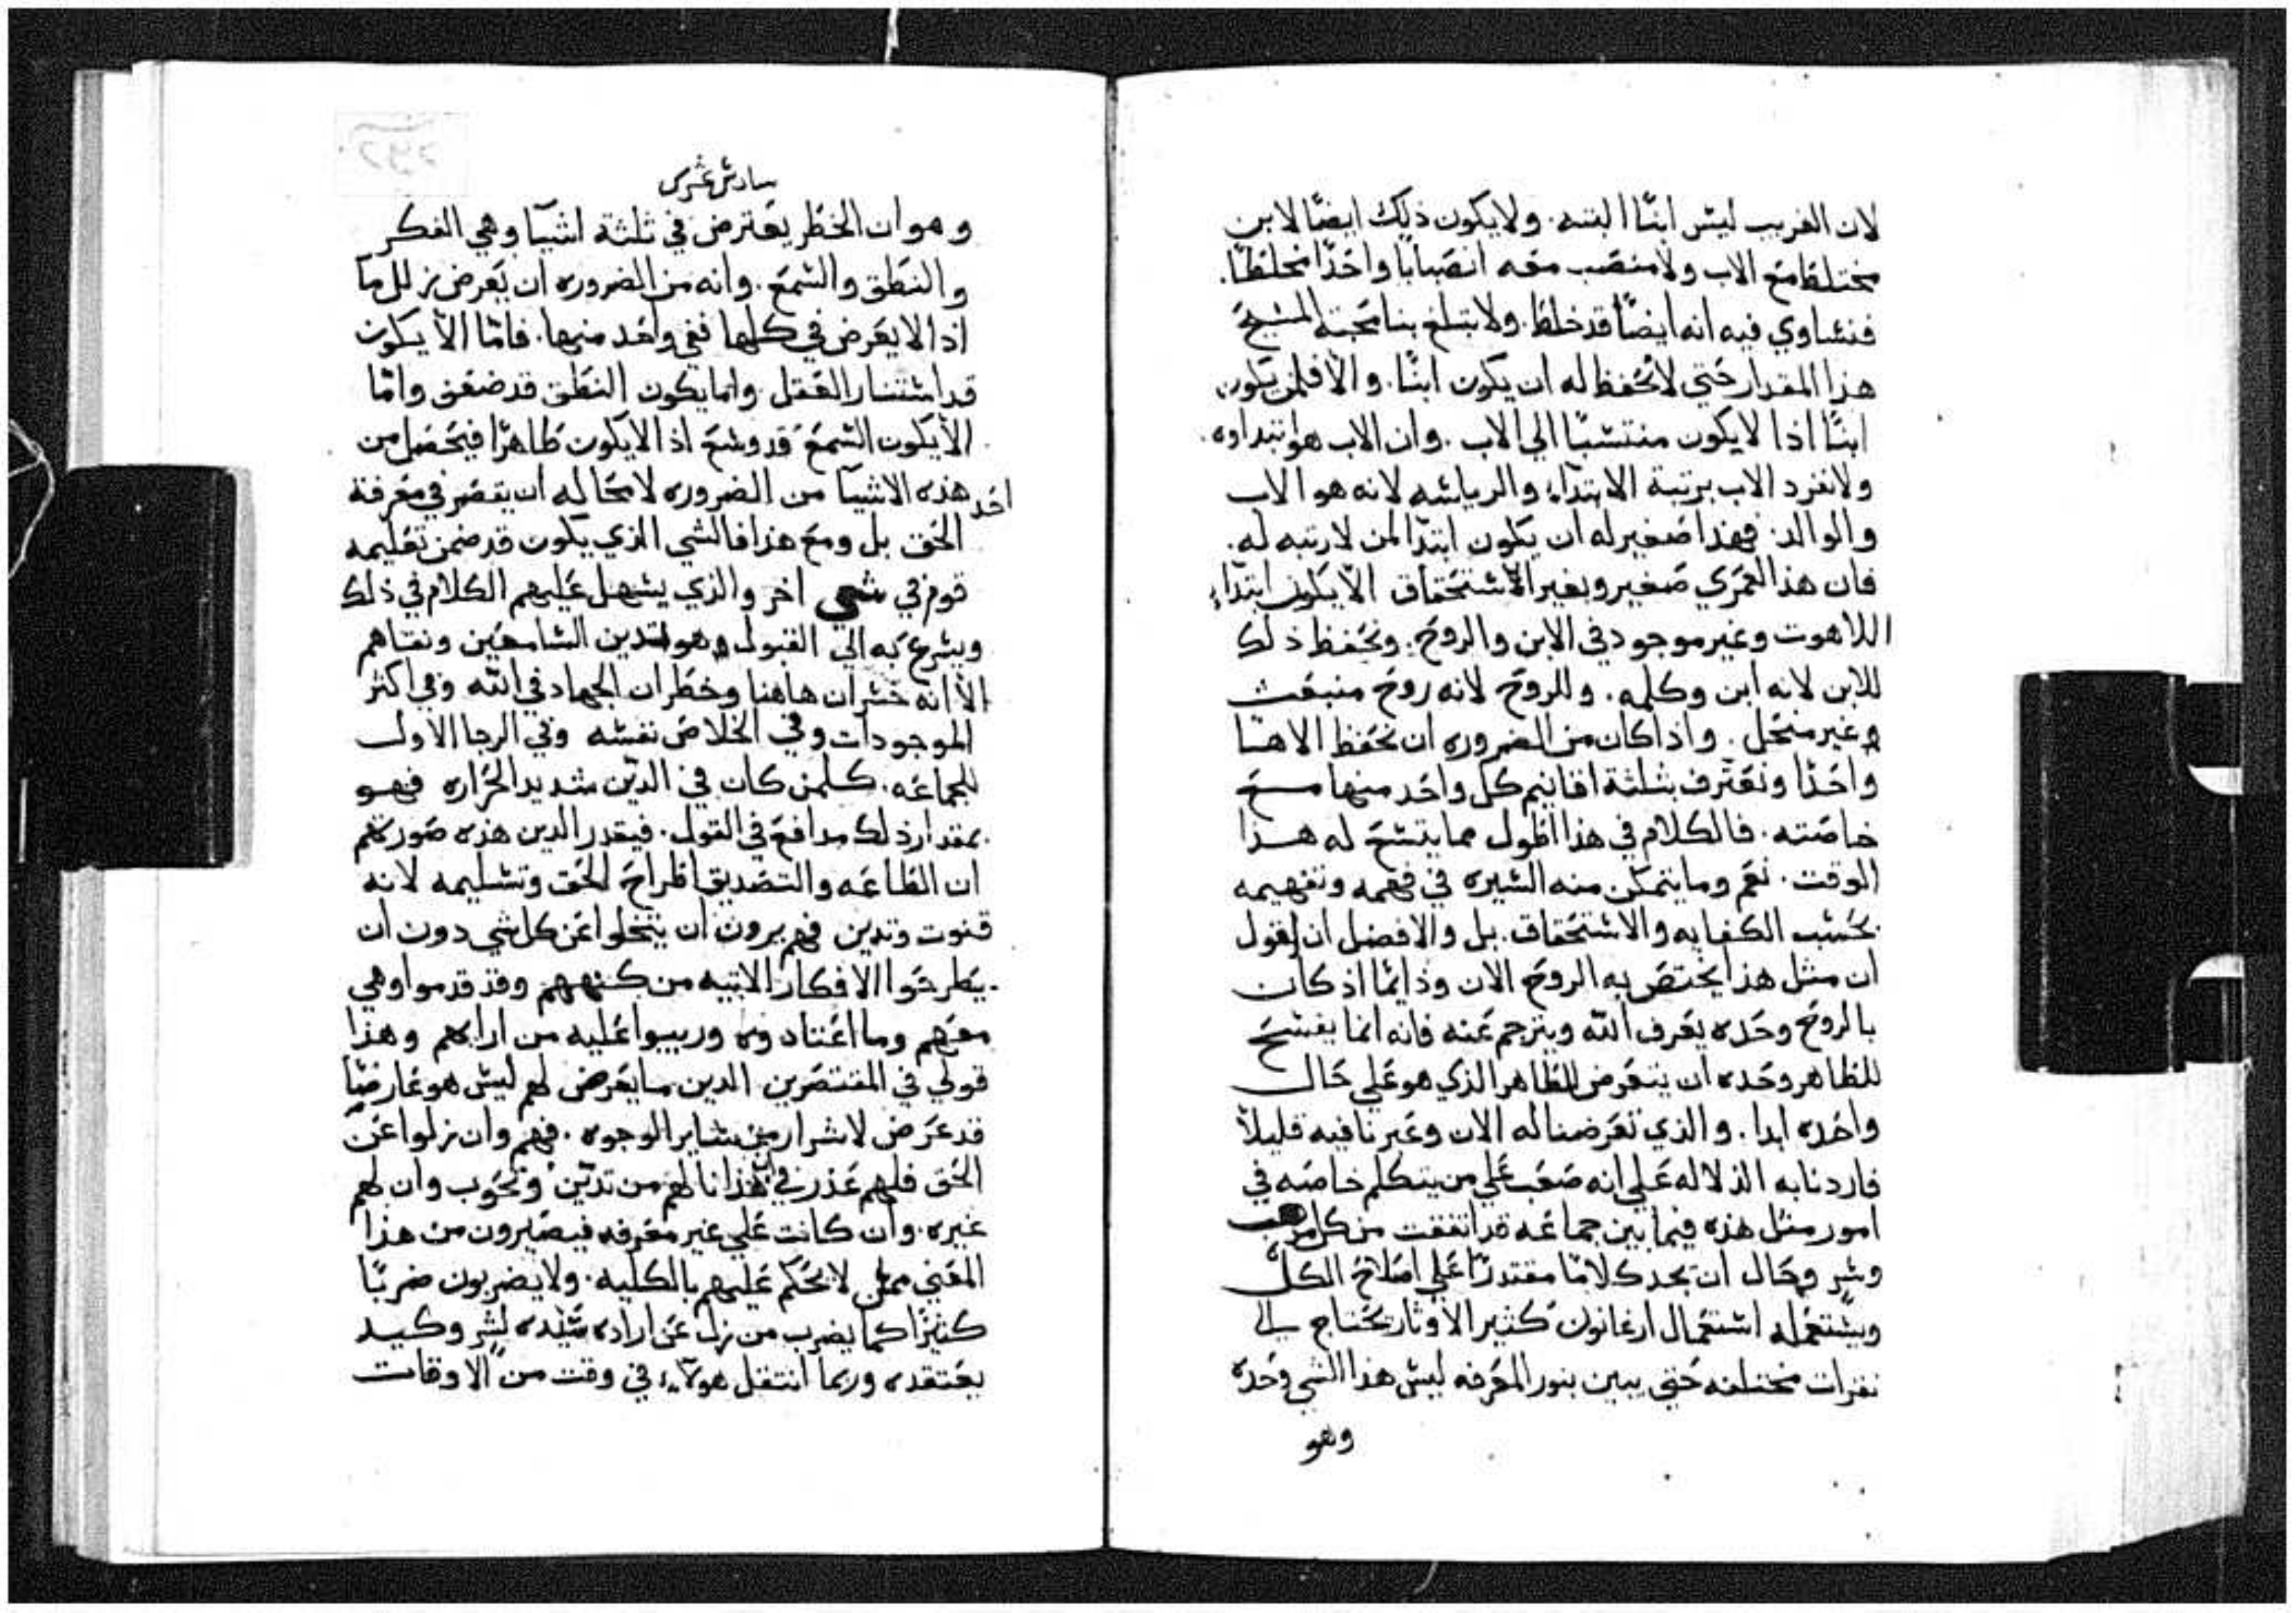 لان الغريب ليس ابنًا البته. ولايكون ذلك ايضًا لابن
مختلطًا مع الاب ولا منصب معه انصبابًا واحدًا مختلطًا.
فنساوي فيه انه ايضًا قد خلط. ولا تبلغ بنا محبة المسيح
هذا المقدار حتي لا نحفظ له ان يكون ابنًا. والا فلمن يكون
ابنًا اذا لا يكون منتسبًا الي الاب. وان الاب هو ابتداوه.
ولانفرد الاب برتبة الابتداء والرياسه لانه هو الاب
والوالد. فهذا صغير له ان يكون ابتدا لمن لا رتبه له.
فان هذا لعمري صغير وبغير الاستحقاق الا يكون ابتداء
اللاهوت وغير موجود في الابن والروح. ونحفظ ذلك
للابن لانه ابن وكلمه. وللروح لانه روح منبعث
وغير منحل. واذا كان من الضروره ان نحفظ الاهنا
واحدًا ونعترف بثلثة اقانيم كل واحد منها مع
خاصته. فالكلام في هذا اطول مما يتسع له هذا
الوقت. نعم وما يتمكن منه السيره في فهمه وتفهيمه
بحسب الكفايه والاستحقاق. بل والافضل ان نقول
ان مثل هذا يختص به الروح الان ودايمًا اذ كان
بالروح وحده يعرف الله ويترجم عنه فانه انما يفسح
للطاهر وحده ان يتعرض للطاهر الذي هو علي حال
واحده ابدا. والذي تعرضنا له الان وعبرنا فيه قليلاً
فاردنا به الدلاله علي انه صعب علي من يتكلم خاصه في
امور مثل هذه فيما بين جماعه قد اتفقت من كل
وسن وحال ان يجد كلامًا مقتدرًا علي اصلاح الكل
ويستعمله استعمال ارغانون كثير الاوتار يحتاج الي
نقرات مختلفه حتي يبين بنور المعرفه ليس هذا الشي وحده
وهو
سادس عشر
وهو ان الخطر يعترض في ثلثة اشيا وهي الفكر
والنطق والسمع. وانه من الضروره ان يعرض زلل ما
اذا لا يعرض في كلها ففي واحد منها. فاما الا يكون
قد استنار العقل. واما يكون النطق قد ضعف واما
الا يكون السمع قد وسع اذ الا يكون طاهرًا فيحصل من
احد هذه الاشيا من الضروره لا محاله ان يقصر في معرفة
الحق بل ومع هذا فالشي الذي يكون قد ضمن تعليمه
قوم في شي اخر والذي يسهل عليهم الكلام في ذلك
ويسرع به الي القبول وهو تدين السامعين ونقاهم
الا انه خسران هاهنا وخطر ان الجهاد في الله وفي اكثر
الموجودات وفي الخلاص نفسه وفي الرجا الاول
للجماعه. كلمن كان في الدين شديد الحراره فهو
بمقدار ذلك مدافع في القول. فيقدر الدين هذه صورتهم
ان الطاعه والتصديق اطراح الحق وتسليمه لانه
قنوت وتدين فهم يرون ان يتخلوا عن كل شي دون ان
يطرحوا الافكار الاتيه من كنههم وقد قدموا وهي
معهم وما اعتادوه وربيوا عليه من ارايهم وهذا
قولي في المقتصرين الدين ما يعرض لهم ليس هو عارضًا
قد عرض لاشرار من ساير الوجوه. فهم وان زلوا عن
الحق فلهم عذر في هذا انا لهم من تدين وتحوب وان لهم
غيره. وان كانت علي غير معرفه فيصيرون من هذا
المعني ممن لا يحكم عليهم بالكليه. ولا يضربون ضربًا
كثيرًا كما يضرب من زل عن اراده سيده لشر وكيد
يعتقده وربما انتقل هولاء في وقت من الاوقات